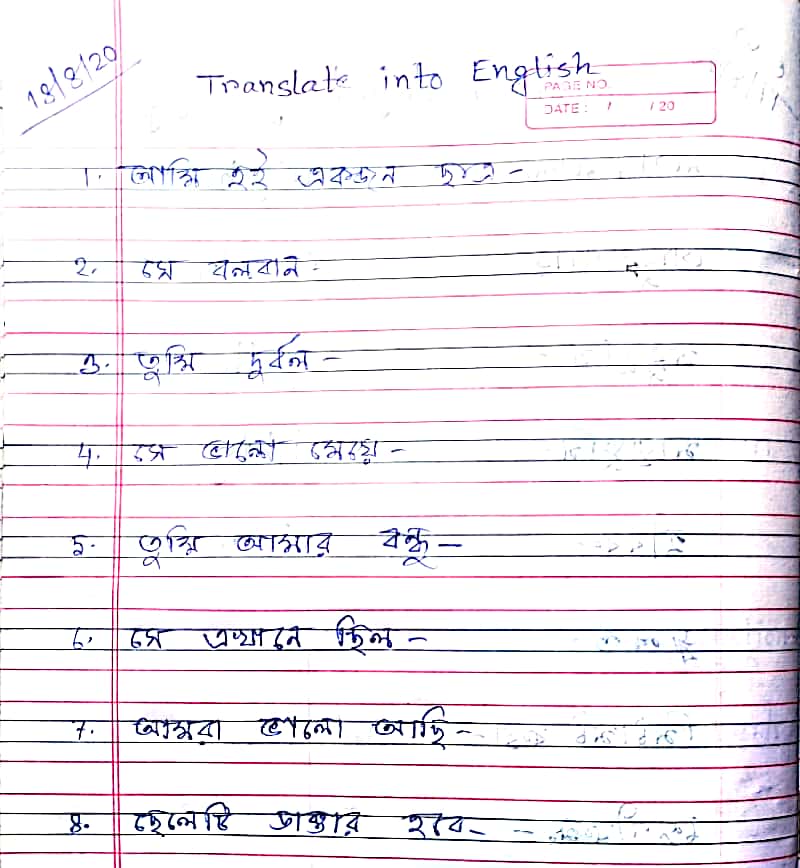 18/8/20
Translate into English
PAGE NO.
DATE : / / 20
1. আমি হই একজন ছাত্র -
2. সে বলবান -
3. তুমি দুর্বল -
4. সে ভালো মেয়ে -
5. তুমি আমার বন্ধু -
6. সে এখানে ছিল -
7. আমরা ভালো আছি -
8. ছেলেটি ডাক্তার হবে -